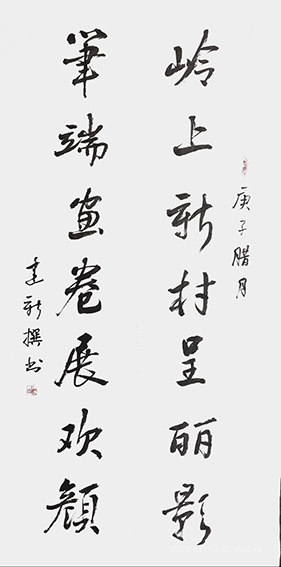 庚子腊月
岭上新村呈丽影
笔端画卷展欢颜
建新撰书